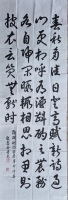 春秋多佳日登高賦新詩過
門更相呼有酒斟酌之農務
各自歸閒暇輒相思相思則
披衣言笑無厭時